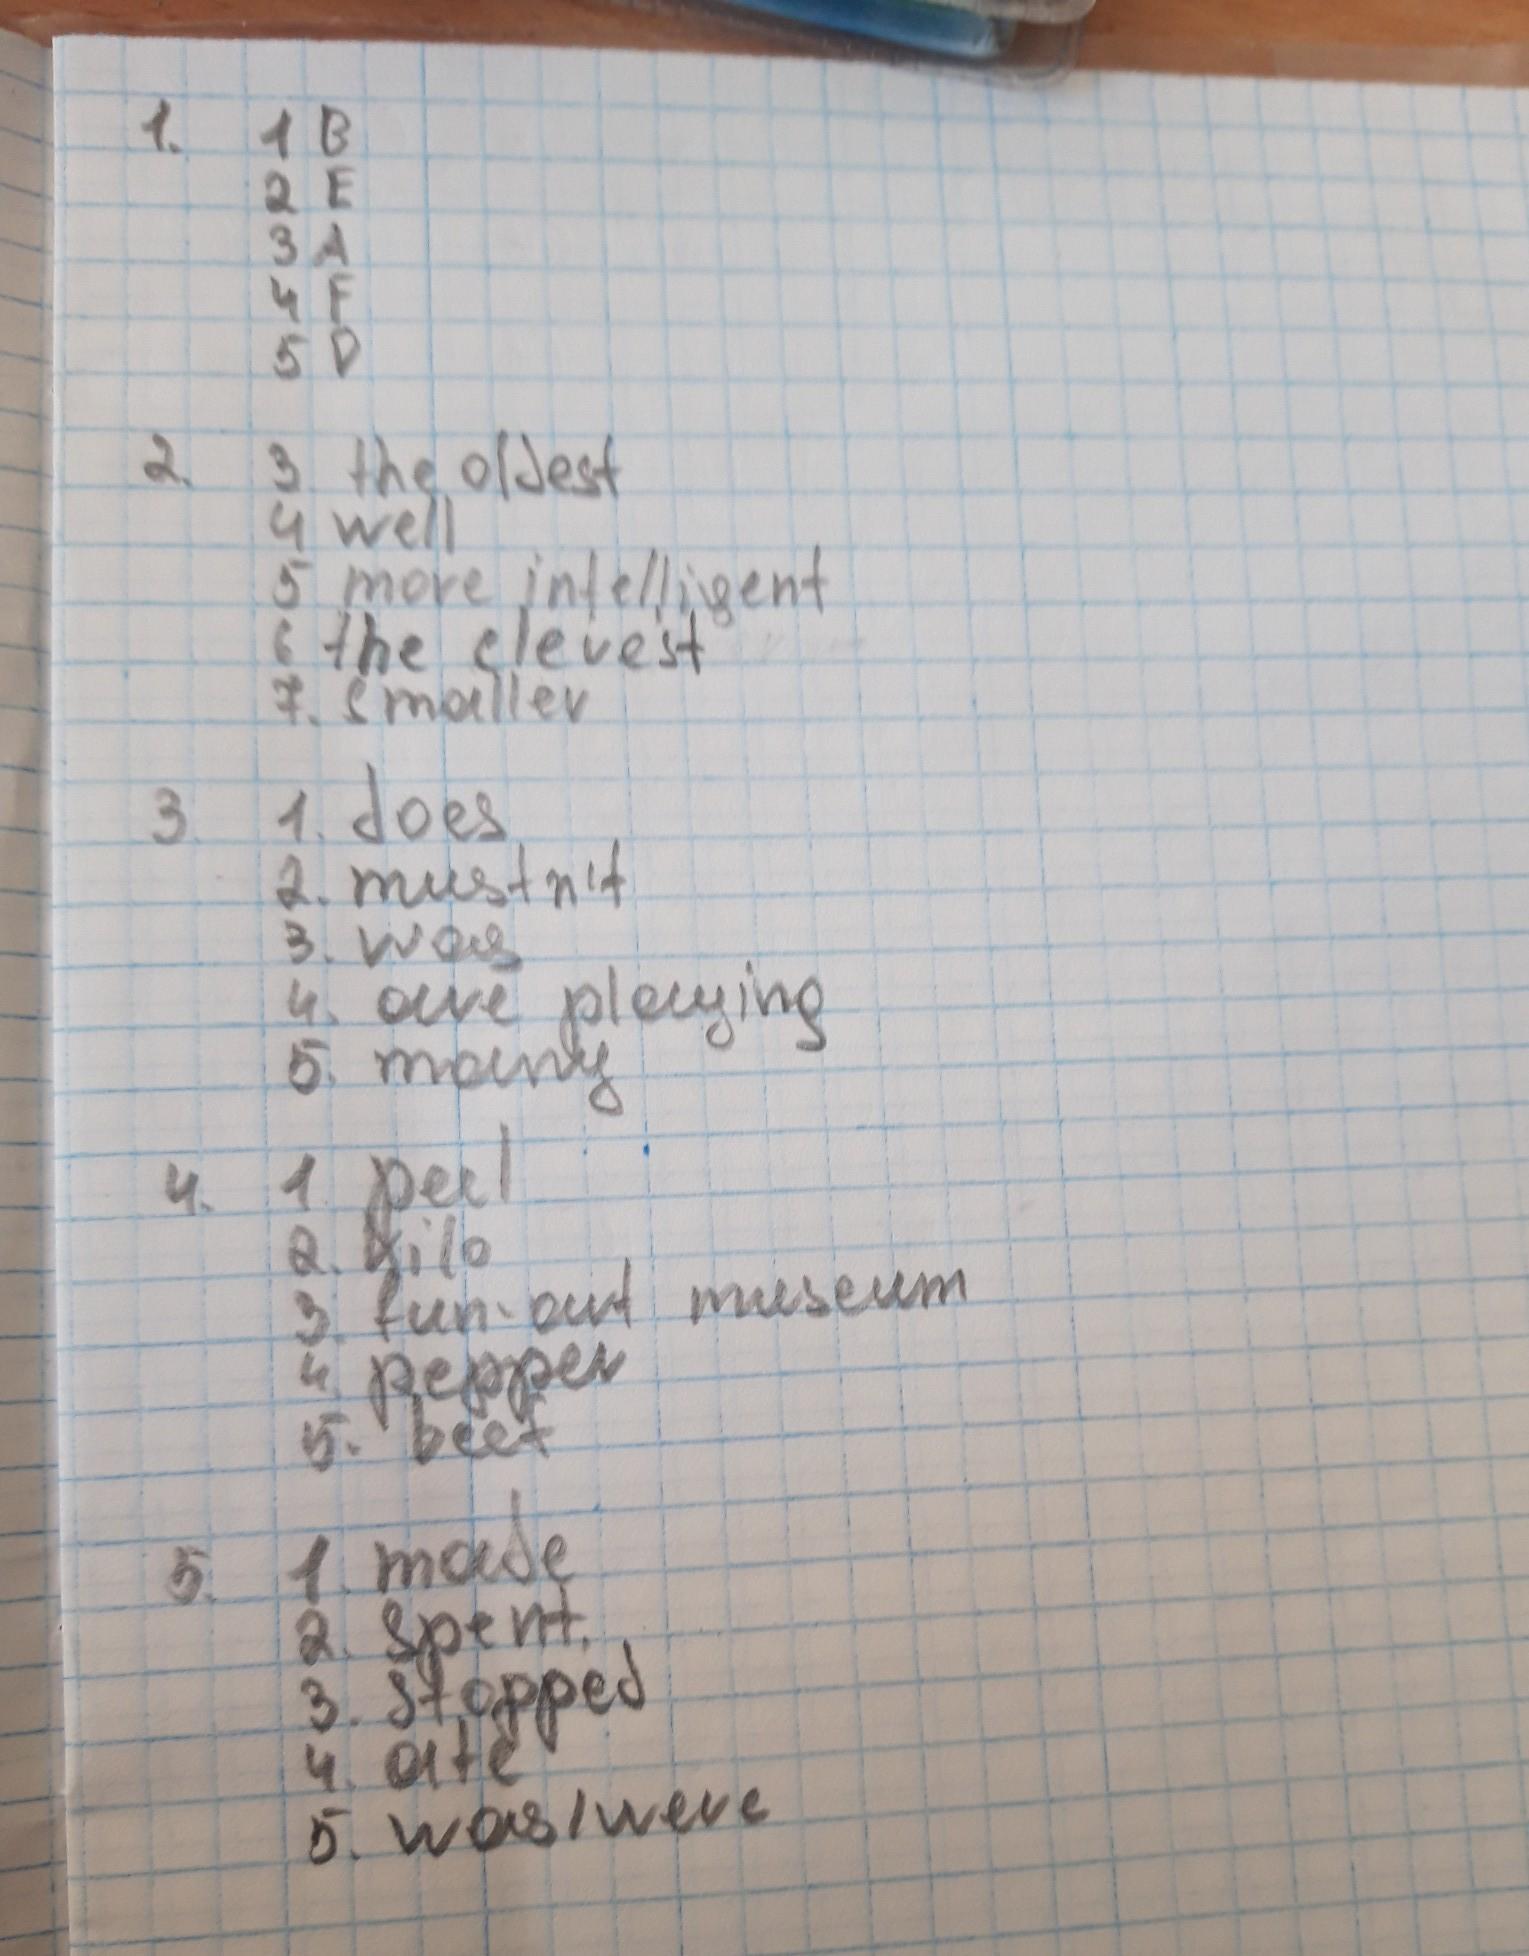 1. 1 B
2 E
3 A
4 F
5 D
2. 3 the oldest
4 well
5 more intelligent
6 the clevest
7. smaller
3 1. does
2. mustn't
3. was
4. are playing
5. many
4. 1 peel
2. kilo
3. fun-art museum
4 pepper
5. beef
5. 1 made
2. spent.
3. stopped
4. ate
5. was/were